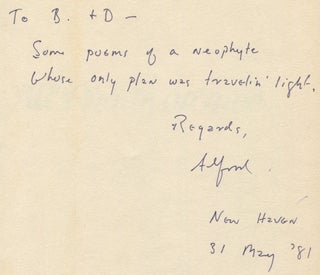 To B. + D —
Some poems of a neophyte
Whose only plan was travelin' light.
Regards,
Alford
New Haven
31 May '81